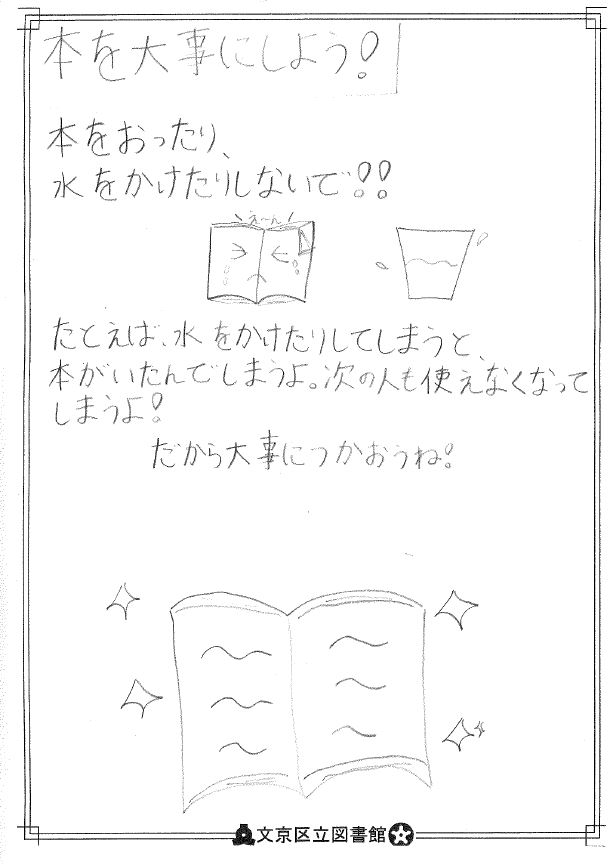 本を大事にしよう!
本をおったり、
水をかけたりしないで!!
\え〜ん/
たとえば、水をかけたりしてしまうと、
本がいたんでしまうよ。次の人も使えなくなって
しまうよ!
だから大事につかおうね!
文京区立図書館